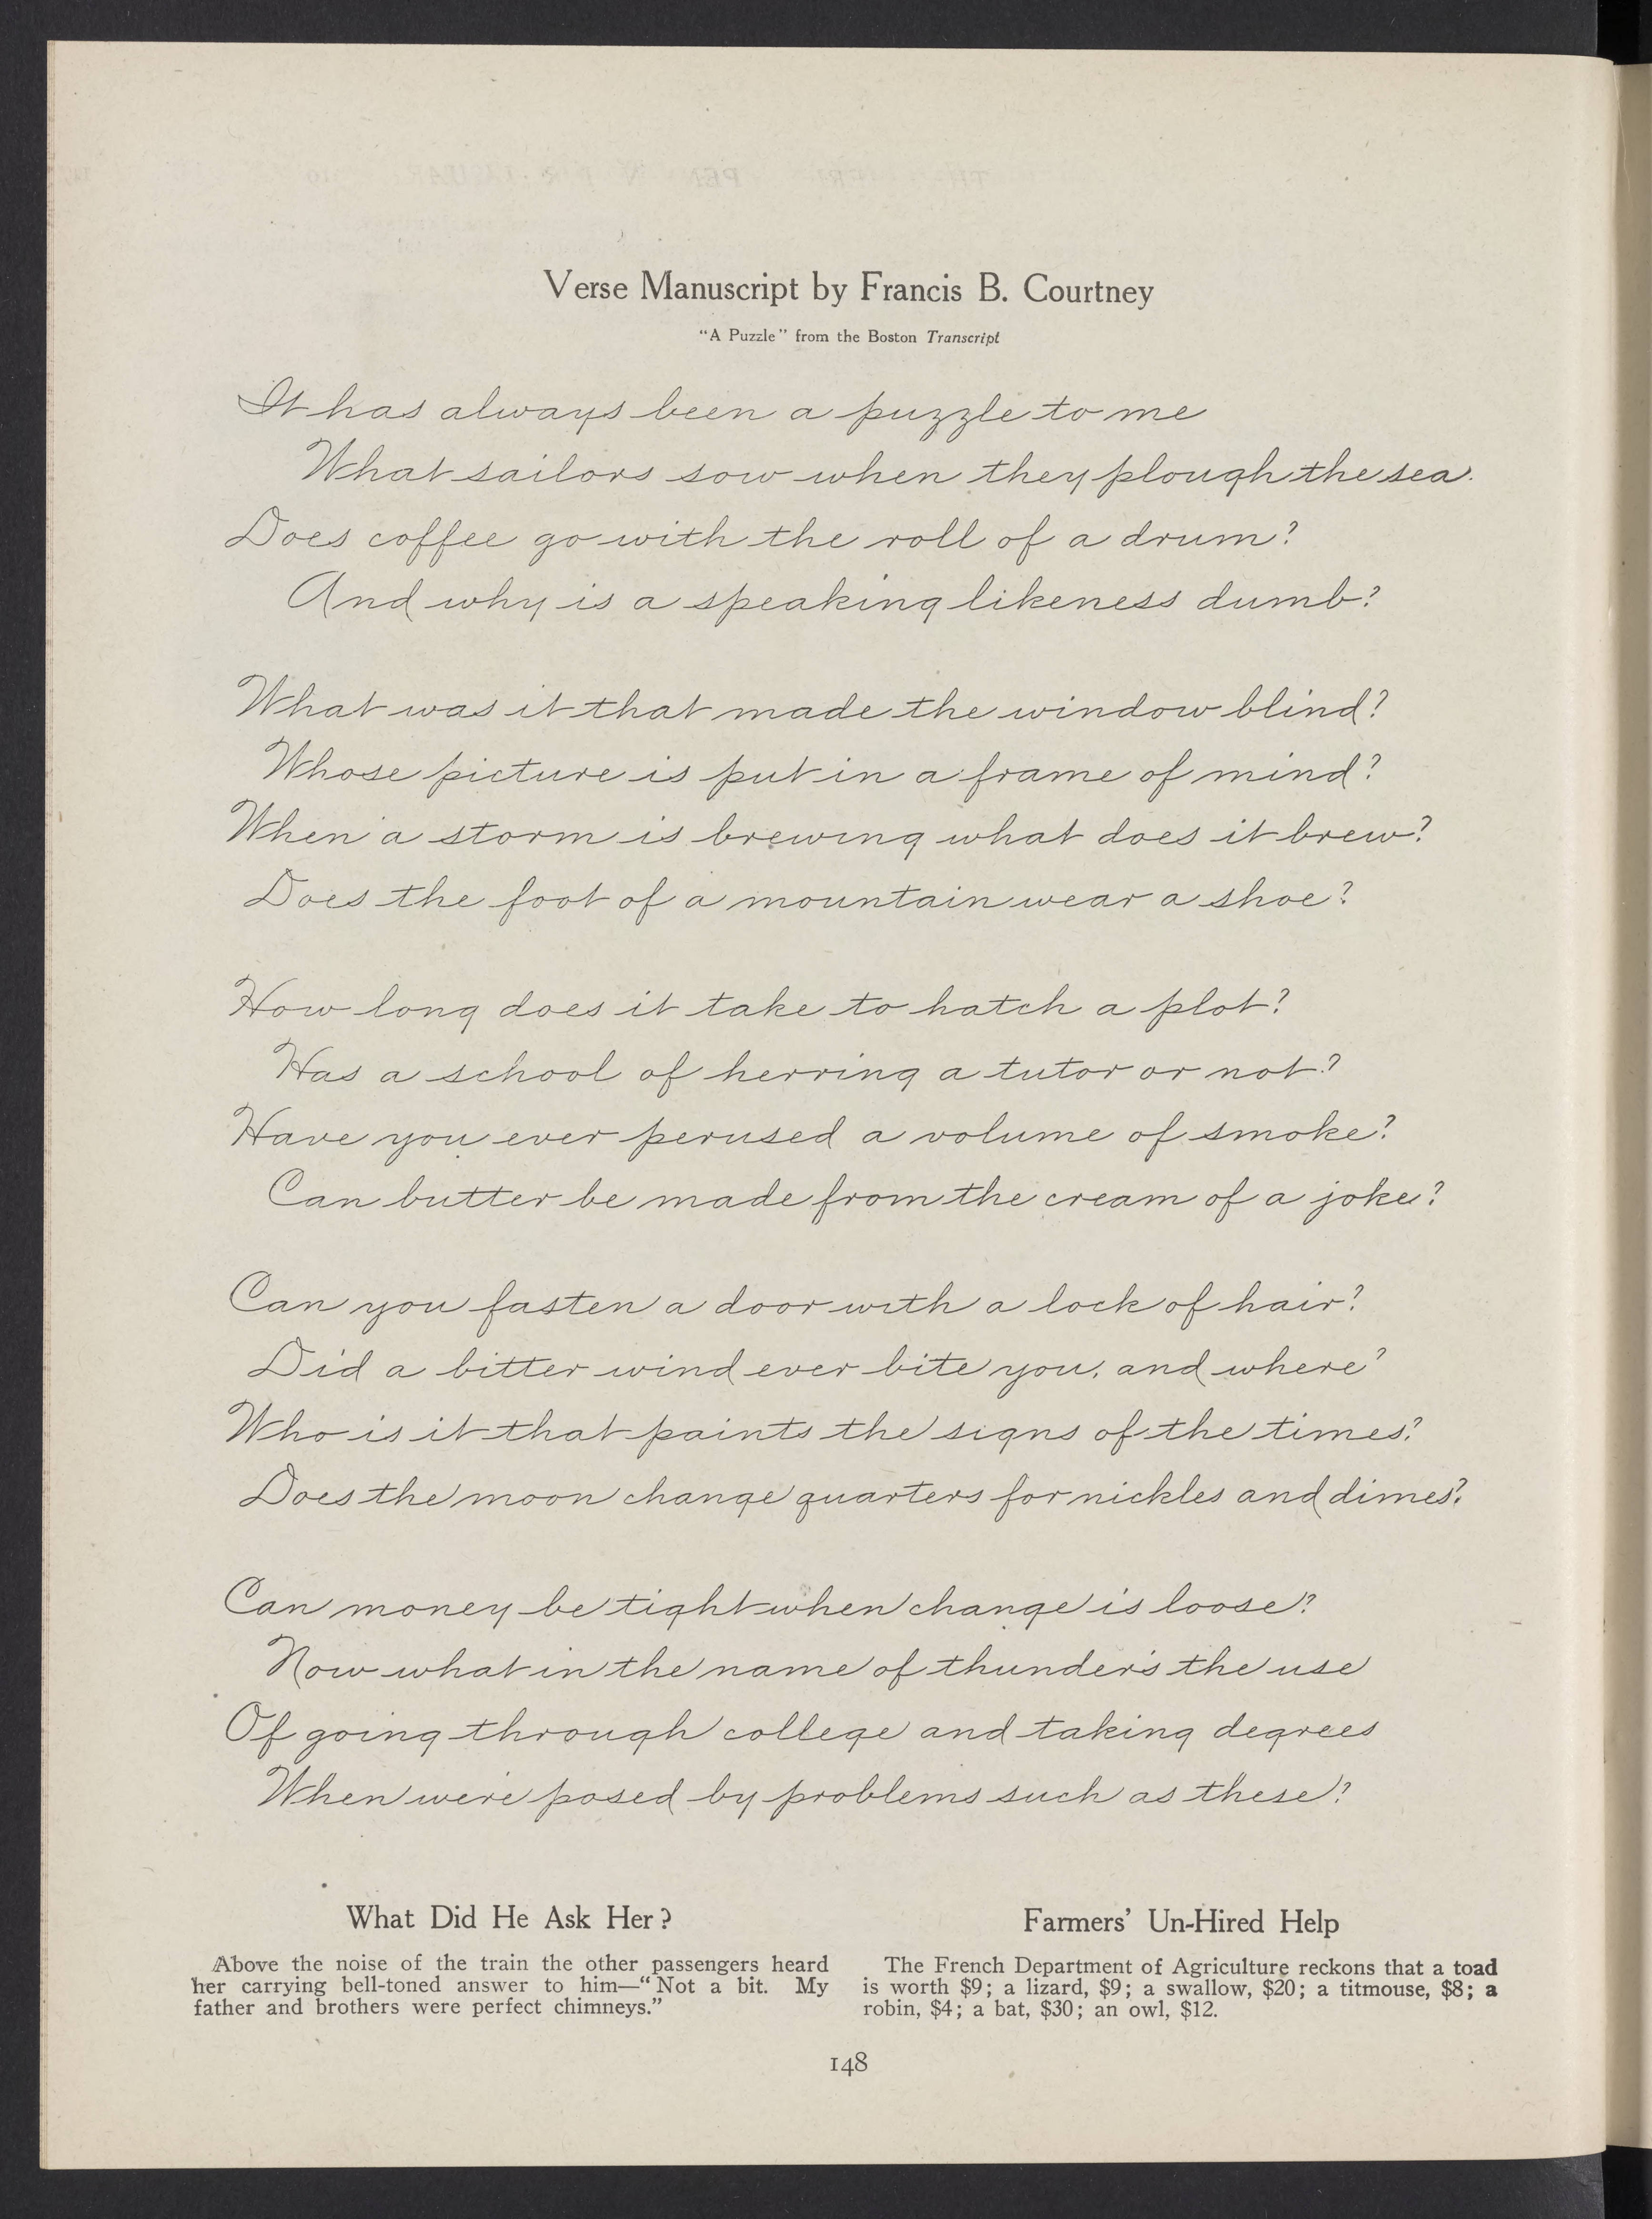 Verse Manuscript by Francis B. Courtney
"A Puzzle" from the Boston Transcript
It has always been a puzzle to me
What sailors sow when they plough the sea.
Does coffee go with the roll of a drum?
And why is a speaking likeness dumb?
What was it that made the window blind?
Whose picture is put in a frame of mind?
When a storm is brewing what does it brew?
Does the foot of a mountain wear a shoe?
How long does it take to hatch a plot?
Has a school of herring a tutor or not?
Have you ever perused a volume of smoke?
Can butter be made from the cream of a joke?
Can you fasten a door with a lock of hair?
Did a bitter wind ever bite you, and where?
Who is it that paints the signs of the times?
Does the moon change quarters for nickles and dimes?
Can money be tight when change is loose?
Now what in the name of thunder's the use
Of going through college and taking degrees
When we're posed by problems such as these?
What Did He Ask Her?
Above the noise of the train the other passengers heard
her carrying bell-toned answer to him—"Not a bit. My
father and brothers were perfect chimneys."
Farmers' Un-Hired Help
The French Department of Agriculture reckons that a toad
is worth $9; a lizard, $9; a swallow, $20; a titmouse, $8; a
robin, $4; a bat, $30; an owl, $12.
148